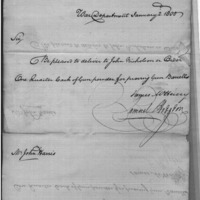 War Department January 2 1800
Sir
Be pleased to deliver to John Nicholson or Order
One Quarter Cask of Gunpowder for proving Gun Barrells
James McHenry
Samuel Hodgdon
Mr John Harris